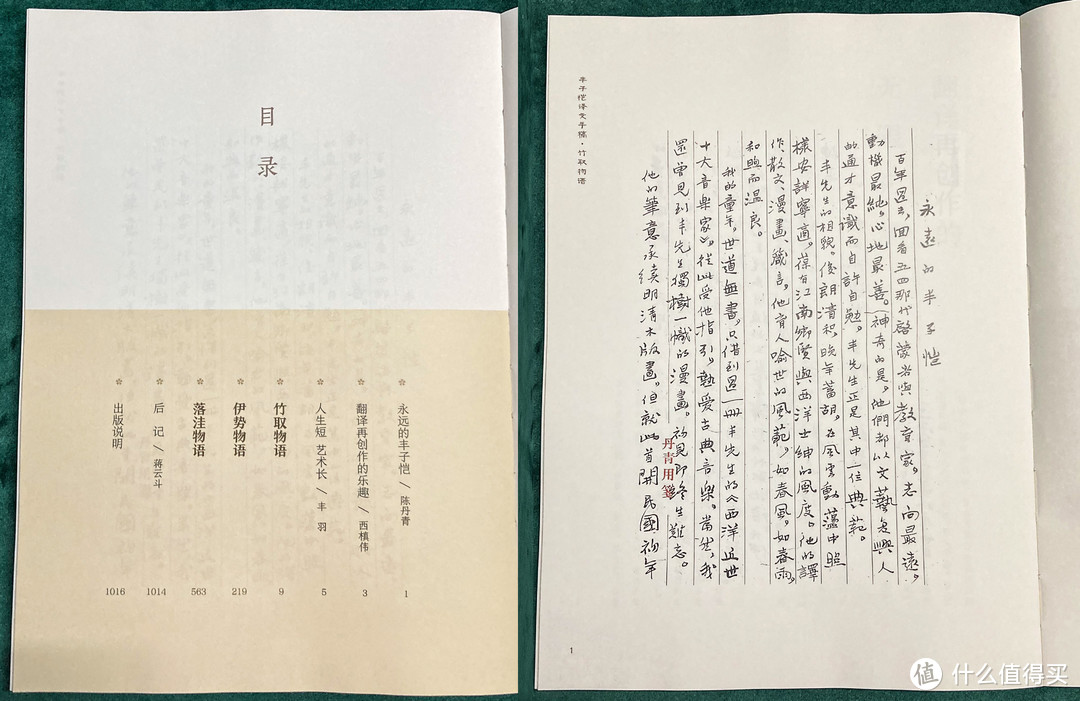 目录
永远的丰子恺 / 陈丹青 1
翻译再创作的乐趣 / 西槙伟 3
人生短 艺术长 / 丰 羽 5
竹取物语 9
伊势物语 219
落洼物语 563
后 记 / 蒋云斗 1014
出版说明 1016
丰子恺译文手稿·竹取物语
永遠的丰子恺
百年過去，回看五四那代啓蒙者與教育家，志向最遠，
動機最純，心地最善。神奇的是，他們都以文藝為興人
的通才意識而自許自勉。丰先生正是其中一位典範。
丰先生的相貌，俊朗清和，晚年蓄胡，在風雲動蕩中照
樣安詳寧適，葆有江南鄉賢與西洋士紳的風度。他的譯
作、散文、漫畫、箴言，他育人喻世的風範，如春風，如春雨，
和煦而溫良。
我的童年，世道無書，只借到過一冊丰先生的《西洋近世
十大音樂家》，從此受他指引，熱愛古典音樂。當然，我
還曾見到丰先生獨樹一幟的漫畫。初見即終生難忘。
他的筆意承續明清木版畫，但就此首開民國初年
丹青用箋
1
值 什么值得买